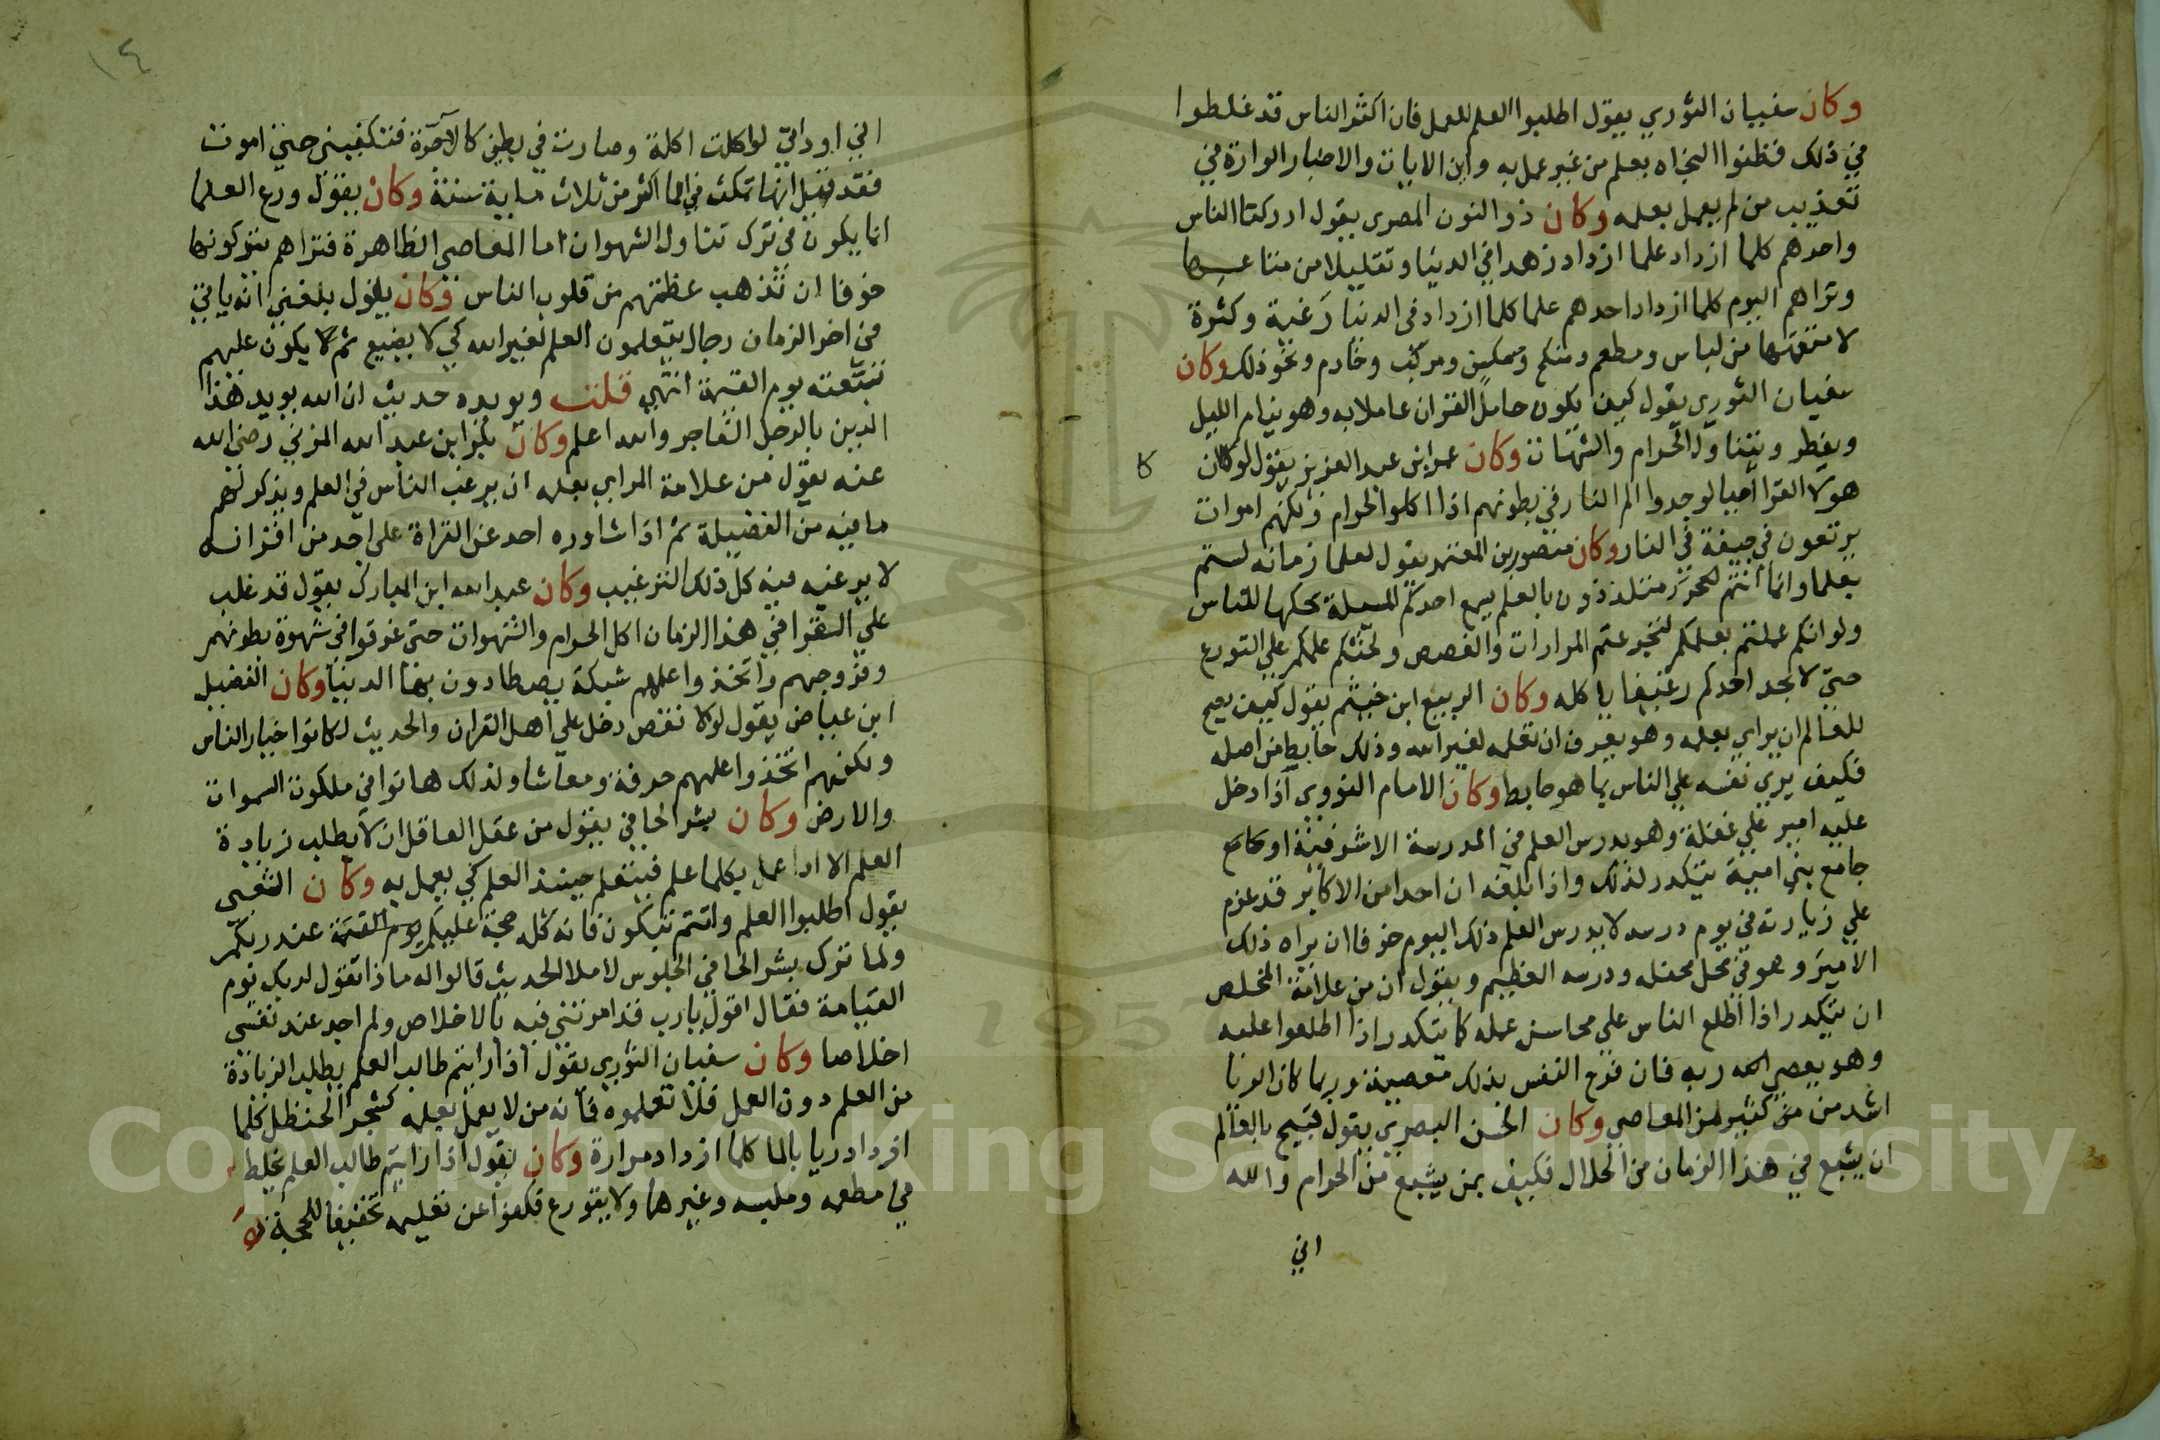 وكان سفيان الثوري يقول اطلبوا العلم للعمل فان اكثر الناس قد غلطوا
في ذلك فظنوا النجاه بعلم من غير عمل به واين الايات والاخبار الواردة في
تعذيب من لم يعمل بعلمه وكان ذو النون المصري يقول ادركنا الناس
واحدهم كلما ازداد علما ازداد زهدا في الدنيا وتقليلا من متاعها
وتراهم اليوم كلما ازداد احدهم علما كلما ازداد في الدنيا رغبة وكثرة
لامتعتها من لباس ومطعم ومنكح ومسكن ومركب وخادم ونحو ذلك وكان
سفيان الثوري يقول كيف يكون حامل القران عاملا به وهو ينام الليل
ويفطر ويتناول الحرام والشبهات وكان عمر ابن عبد العزيز يقول لو كان
هولا القرا احيا لوجدوا الم النار في بطونهم اذا اكلوا الحرام ولكنهم اموات
يرتعون في جيفة في النار وكان منصور بن المعتمر يقول لعلما زمانه لستم
بعلما وانما انتم متلذذون بالعلم يسمع احدكم المسيلة يحكيها للناس
ولو انكم عملتم بعلمكم لتجرعتم المرارات والغصص ولحثكم علمكم علي التورع
حتي لا يجد احدكم رغيفا ياكله وكان الربيع ابن خيثم يقول كيف يصح
للعالم ان يراي بعلمه وهو يعرف ان تعلمه لغير الله وذلك حابط من اصله
فكيف يري نفسه علي الناس بما هو حابط وكان الامام النووي اذا دخل
عليه امير علي غفلة وهو يدرس العلم في المدرسة الاشرفية او جامع
جامع بني امية يتكدر لذلك واذا بلغه ان احدا من الاكابر قد عزم
علي زيارته في يوم درسه لا يدرس العلم ذلك اليوم خوفا ان يراه ذلك
الامير وهو في محل محفله ودرسه العظيم ويقول ان من علامة المخلص
ان يتكدر اذا اطلع الناس علي محاسن عمله كما يتكدر اذا اطلعوا عليه
وهو يعصي الله ربه فان فرح النفس بذلك معصية وربما كان الريا
اشد من كثير من المعاصي وكان الحسن البصري يقول قبيح بالعالم
ان يشبع في هذا الزمان من الحلال فكيف بمن يشبع من الحرام والله
اني
١٤
اني اود اني لو اكلت اكلة وصارت في بطني كالاجرة فتكفيني حتي اموت
فقد قيل انها تمكث في الما اكثر من ثلاث ماية سنة وكان يقول ورع العلما
انما يكون في ترك تناول الشهوات اما المعاصي الظاهرة فتراهم يتركونها
خوفا ان تذهب عظمتهم من قلوب الناس وكان يقول بلغني انه ياتي
في اخر الزمان رجال يتعلمون العلم لغير الله كي لا يضيع ثم لا يكون عليهم
تبعته يوم القيمة انتهي قلت ويويده حديث ان الله يويد هذا
الدين بالرجل الفاجر والله اعلم وكان بكر ابن عبد الله المزني رضي الله
عنه يقول من علامة المراي بعلمه ان يرغب الناس في العلم ويذكر لهم
ما فيه من الفضيلة ثم اذا شاوره احد عن القراة علي احد من اقرانه
لا يرغبه فيه كل ذلك الترغيب وكان عبد الله ابن المبارك يقول قد غلب
علي القرا في هذا الزمان اكل الحرام والشهوات حتي غرقوا في شهوة بطونهم
وفروجهم واتخذوا علمهم شبكة يصطادون بها الدنيا وكان الفضيل
ابن عياض يقول لولا نقص دخل علي اهل القران والحديث لكانوا خيار الناس
ولكنهم اتخذوا علمهم حرفة ومعاشا ولذلك هانوا في ملكوت السموات
والارض وكان بشر الحافي يقول من عقل العاقل ان لا يطلب زيادة
العلم الا اذا عمل بكلما علم فيتعلم حينيذ العلم كي يعمل به وكان الشعبي
يقول اطلبوا العلم وانتم تبكون فانه كله حجة عليكم يوم القيمة عند ربكم
ولما ترك بشر الحافي الجلوس لاملا الحديث قالوا له ماذا تقول لربك يوم
القيامة فقال اقول يارب قد امرتني فيه بالاخلاص ولم اجد عند نفسي
اخلاصا وكان سفيان الثوري يقول اذا رايتم طالب العلم يطلب الزيادة
من العلم دون العمل فلا تعلموه فانه من لا يعمل بعلمه كشجر الحنظل كلما
ازداد ريا بالما كلما ازداد مرارة وكان يقول اذا رايتم طالب العلم يخلط
في مطعمه وملبسه وغيرهما ولا يتورع فكفوا عن تعليمه تخفيفا للحجة
Copyright © King Saud University
1957